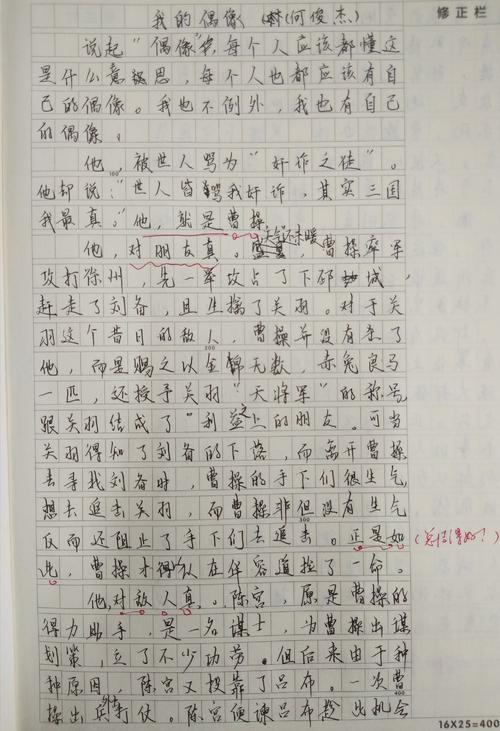 我的偶像 (何俊杰)
修正栏
说起"偶像",每个人应该都懂这
是什么意思,每个人也都应该有自
己的偶像。我也不例外,我也有自己
的偶像。
他,被世人骂为"奸诈之徒"。
100
他却说:"世人皆骂我奸诈,其实三国
我最真。"他,就是曹操。
他,对朋友真。天气还未暖,曹操率军
攻打徐州,先一举攻占了下邳城,
赶走了刘备,且生擒了关羽。对于关
羽这个昔日的敌人,曹操并没有杀了
200
他,而是赐之以金锦无数,赤兔良马
一匹,还授予关羽"天将军"的称号,
跟关羽结成了"利益之上的朋友。可当
关羽得知了刘备的下落,而离开曹操
去寻找刘备时,曹操的手下们很生气,
想去追击关羽,而曹操非但没有生气
300
反而还阻止了手下们去追击。正是如
(总结得好!)
此,曹操才得以在华容道捡了一命。
他,对敌人真。陈宫,原是曹操的
得力助手,是一名谋士,为曹操出谋
划策,立了不少功劳。但后来由于种
种原因,陈宫又投靠了吕布。一次曹
400
操出兵外打仗。陈宫便谏吕布趁此机会
16X25=400